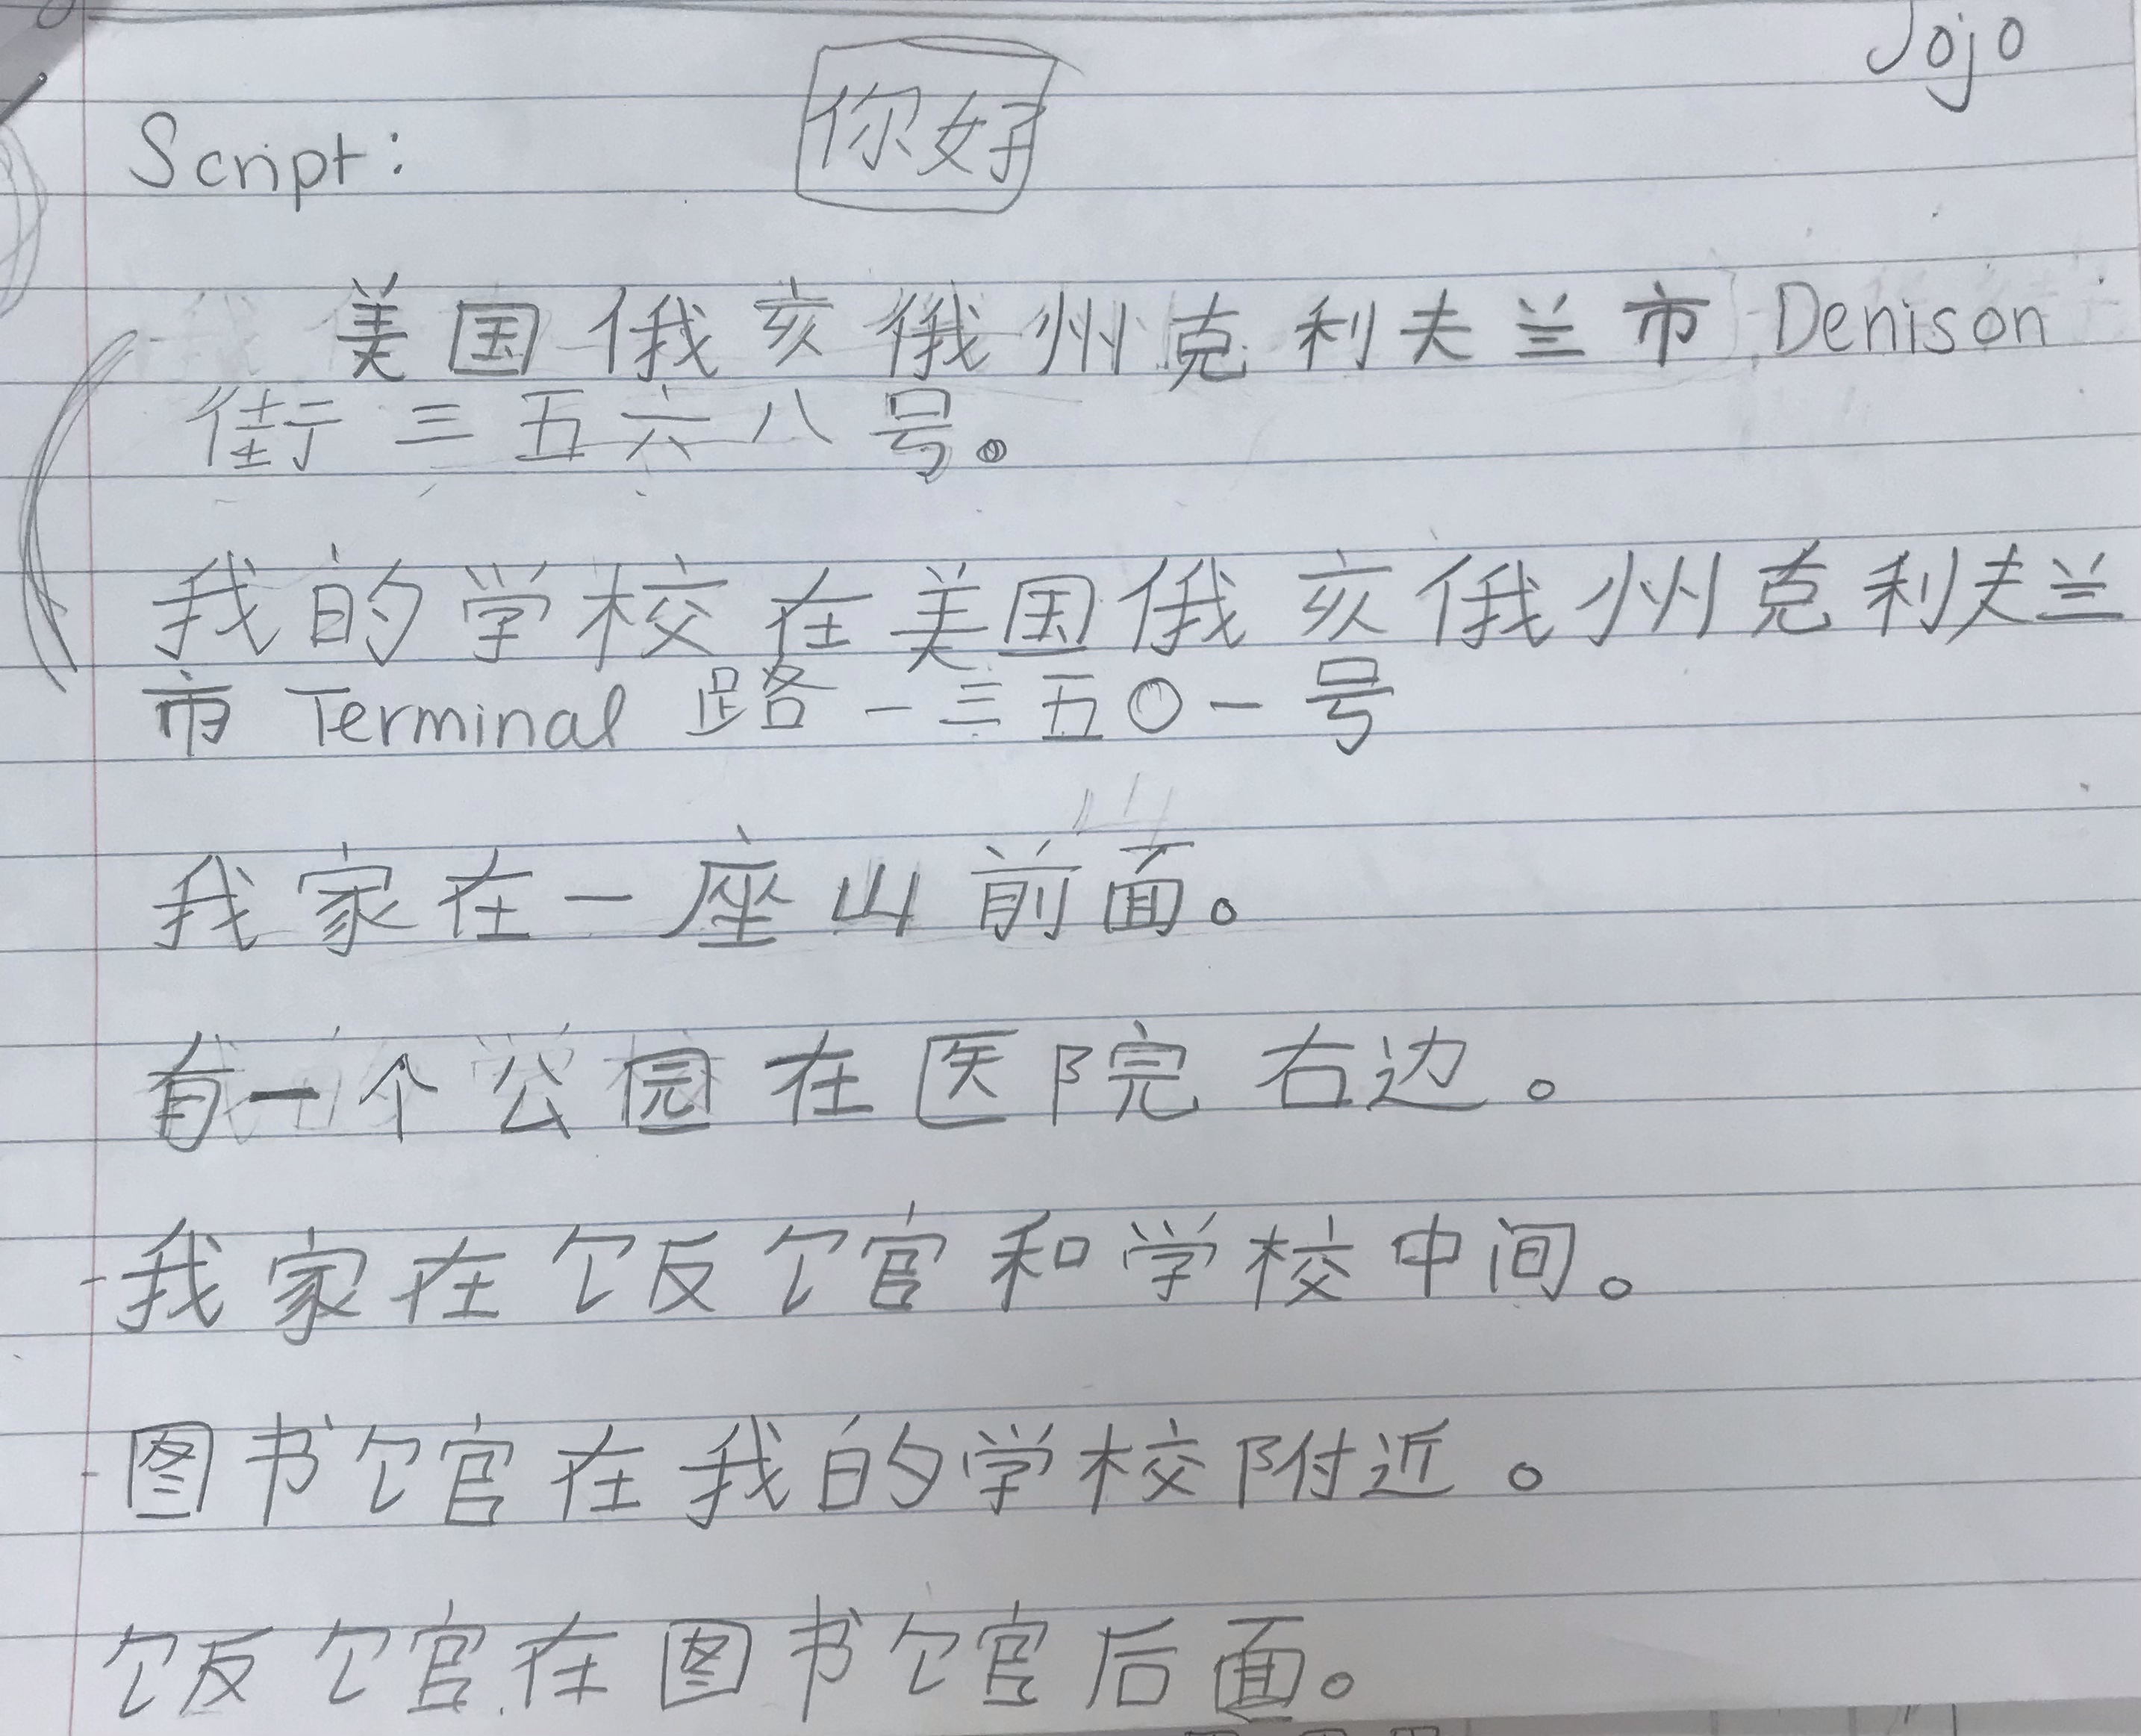 Jojo
Script: 你好
美国俄亥俄州克利夫兰市 Denison
街三五六八号。
我的学校在美国俄亥俄州克利夫兰
市 Terminal 路一三五〇一号
我家在一座山前面。
有一个公园在医院右边。
-我家在饭馆和学校中间。
-图书馆在我的学校附近。
饭馆在图书馆后面。